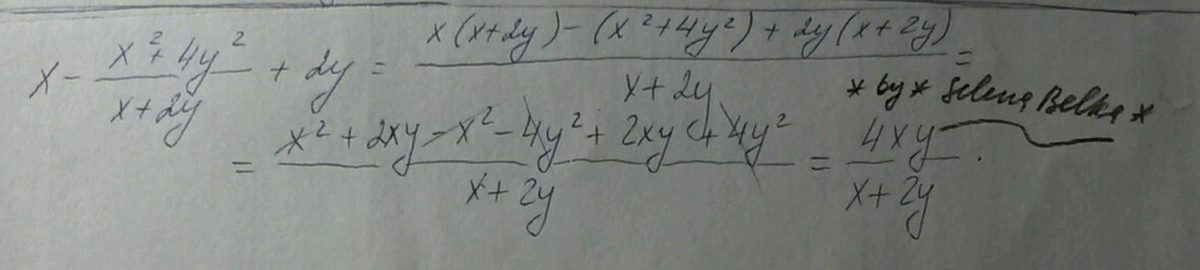 x - \frac{x^2+4y^2}{x+2y} + 2y = \frac{x(x+2y)-(x^2+4y^2)+2y(x+2y)}{x+2y} =
* by * Selena Belka *
= \frac{x^2+2xy-x^2-4y^2+2xy+4y^2}{x+2y} = \frac{4xy}{x+2y}.